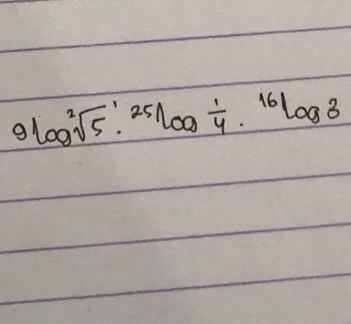 9 log ²√5¹ . ²⁵log 1/4 . ¹⁶log 3